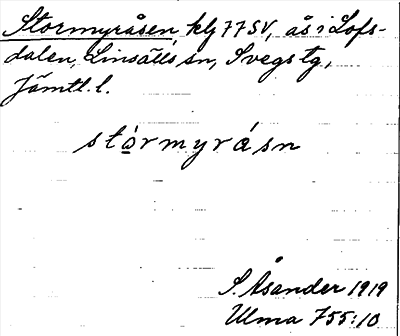 Stormyråsen, klj 77 SV, ås i Lofs-
dalen, Linsälls sn, Svegs tg,
Jämtl. l.
stórmyrásn
S. Åsander 1919
Ulma 755:10